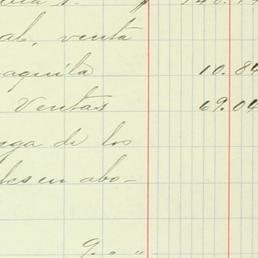 al, venta
aquita 10.84
Ventas 69.04
ga de los
les en abo-